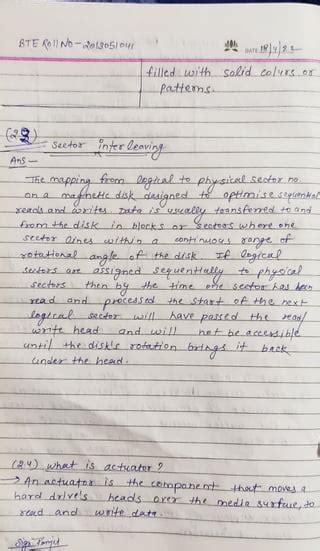 BTE Roll No - 2013051041
DATE: 18/4/23
filled with solid colurs or
patterns.
(2.2)
Sector interleaving
Ans -
The mapping from logical to physical sector no.
on a magnetic disk designed to optimise sequential
reads and writes. Data is usually transferred to and
from the disk in blocks or sectors where one
sector lines within a continuous range of
rotational angle of the disk. If logical
sectors are assigned sequentially to physical
sectors then by the time one sector has been
read and processed the start of the next
logical sector will have passed the read/
write head and will not be accessible
until the disk's rotation brings it back
under the head.
(2.4) What is actuator?
→ An actuator is the component that moves a
hard drive's heads over the media surface, to
read and write data.